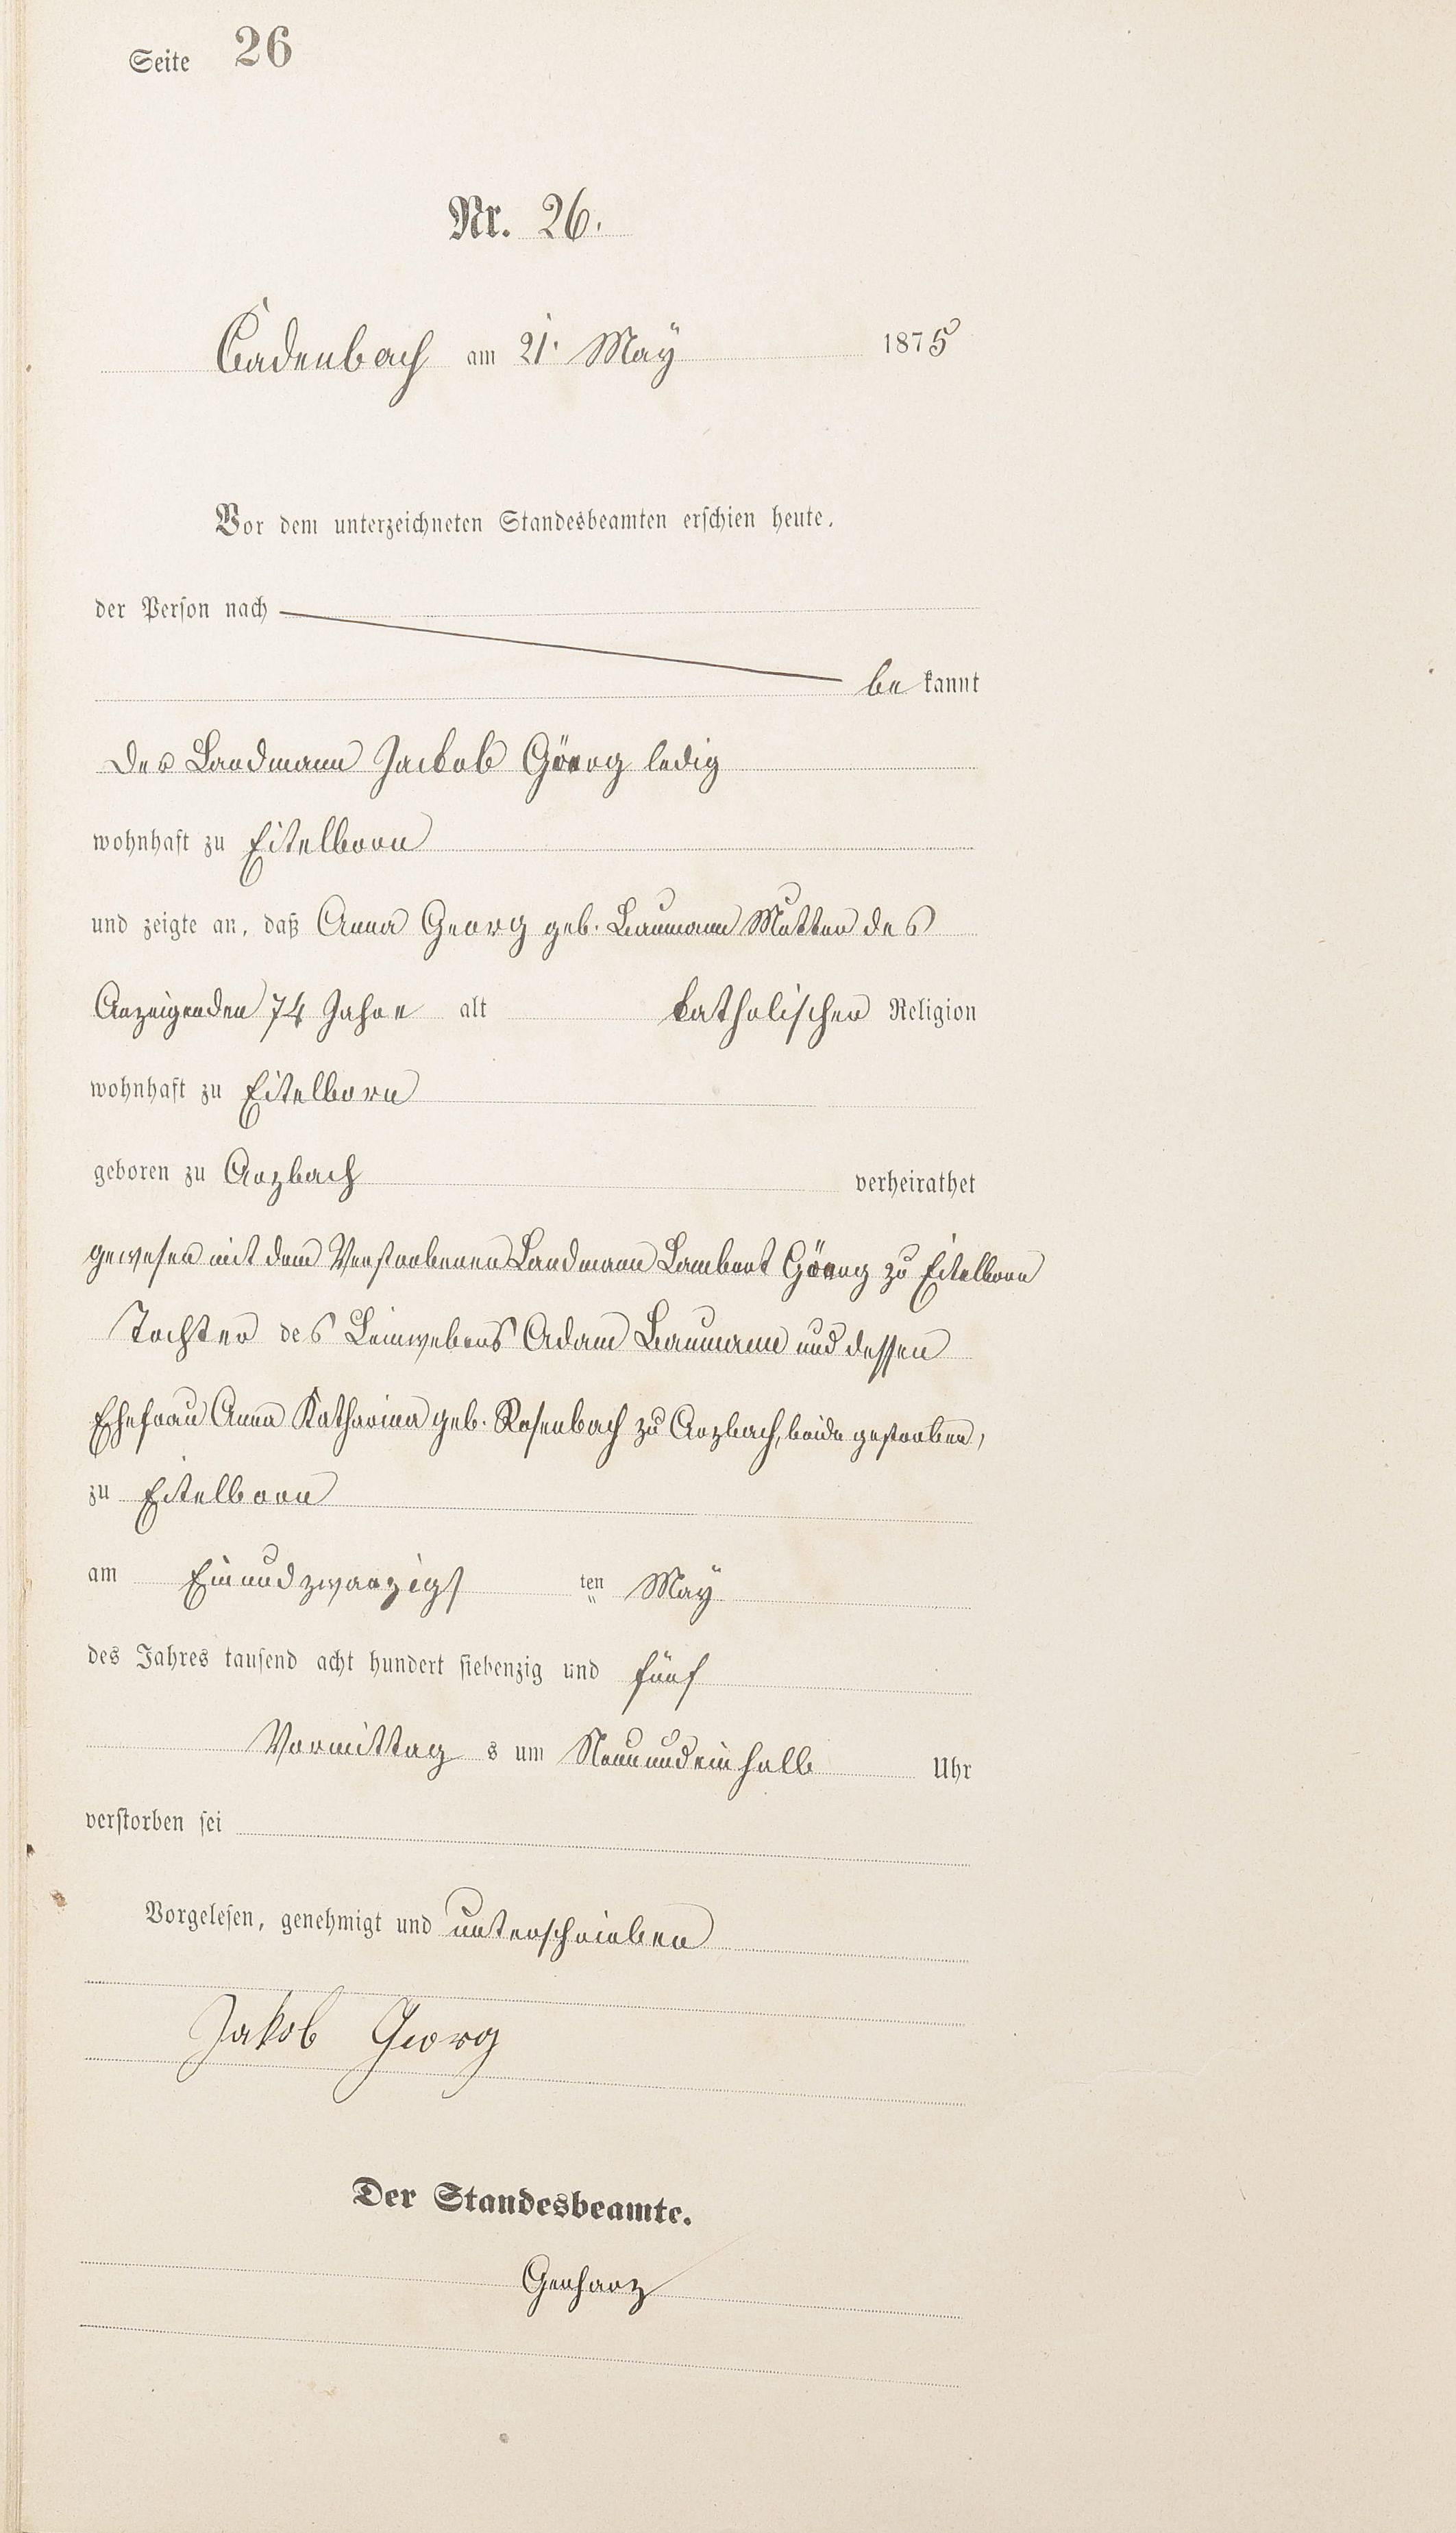 Seite 26
Nr. 26.
Cadenbach am 21. May 1875
Vor dem unterzeichneten Standesbeamten erschien heute,
der Person nach
be kannt
der Landmann Jackob Göerg ledig
wohnhaft zu Eitelborn
und zeigte an, daß Anna Georg geb. Baumann Mutter des
Anzeigenden 74 Jahre alt katholischer Religion
wohnhaft zu Eitelborn
geboren zu Arzbach verheirathet
gewesen mit dem Verstorbenen Landmann Lambert Göerg zu Eitelborn
Tochter des Leinwebers Adam Baumann und dessen
Ehefrau Anna Katharina geb. Rosenbach zu Arzbach, beide gestorben,
zu Eitelborn
am Einundzwanzigs ten May
des Jahres tausend acht hundert siebenzig und fünf
Vormittag s um Neunundeinhalb Uhr
verstorben sei
Vorgelesen, genehmigt und unterschrieben
Jakob Georg
Der Standesbeamte.
Gerharz